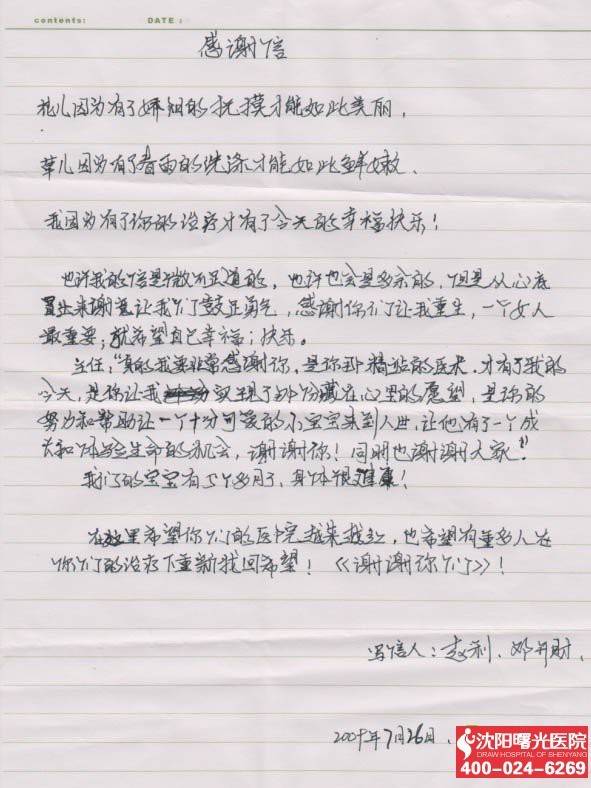 contents:
DATE:
感谢信
花儿因为有了娇阳的抚摸才能如此美丽，
草儿因为有了春雨的洗涤才能如此鲜嫩、
我因为有了你的治疗才有了今天的幸福快乐！
也许我的信是微不足道的，也许也会是多余的，但是从心底
冒出来谢意让我们了鼓足勇气，感谢你们让我重生，一个女人
最重要；就希望自己幸福；快乐。
主任，“真的我要非常感谢你，是你那精湛的医术，才有了我的
今天，是你让我实现了那份藏在心里的愿望，是你的
努力和帮助让一个十分可爱的小宝宝来到人世，让他有了一个成
长和体验生命的机会，谢谢你！同时也谢谢大家”
我们的宝宝有5个多月了，身体很健康！
在这里希望你们的医院越来越红，也希望有更多人在
你们的治疗下重新找回希望！《谢谢你们》！
写信人：赵利、邓
2009年7月26日
沈阳曙光医院
DRAW HOSPITAL OF SHENYANG
400-024-6269